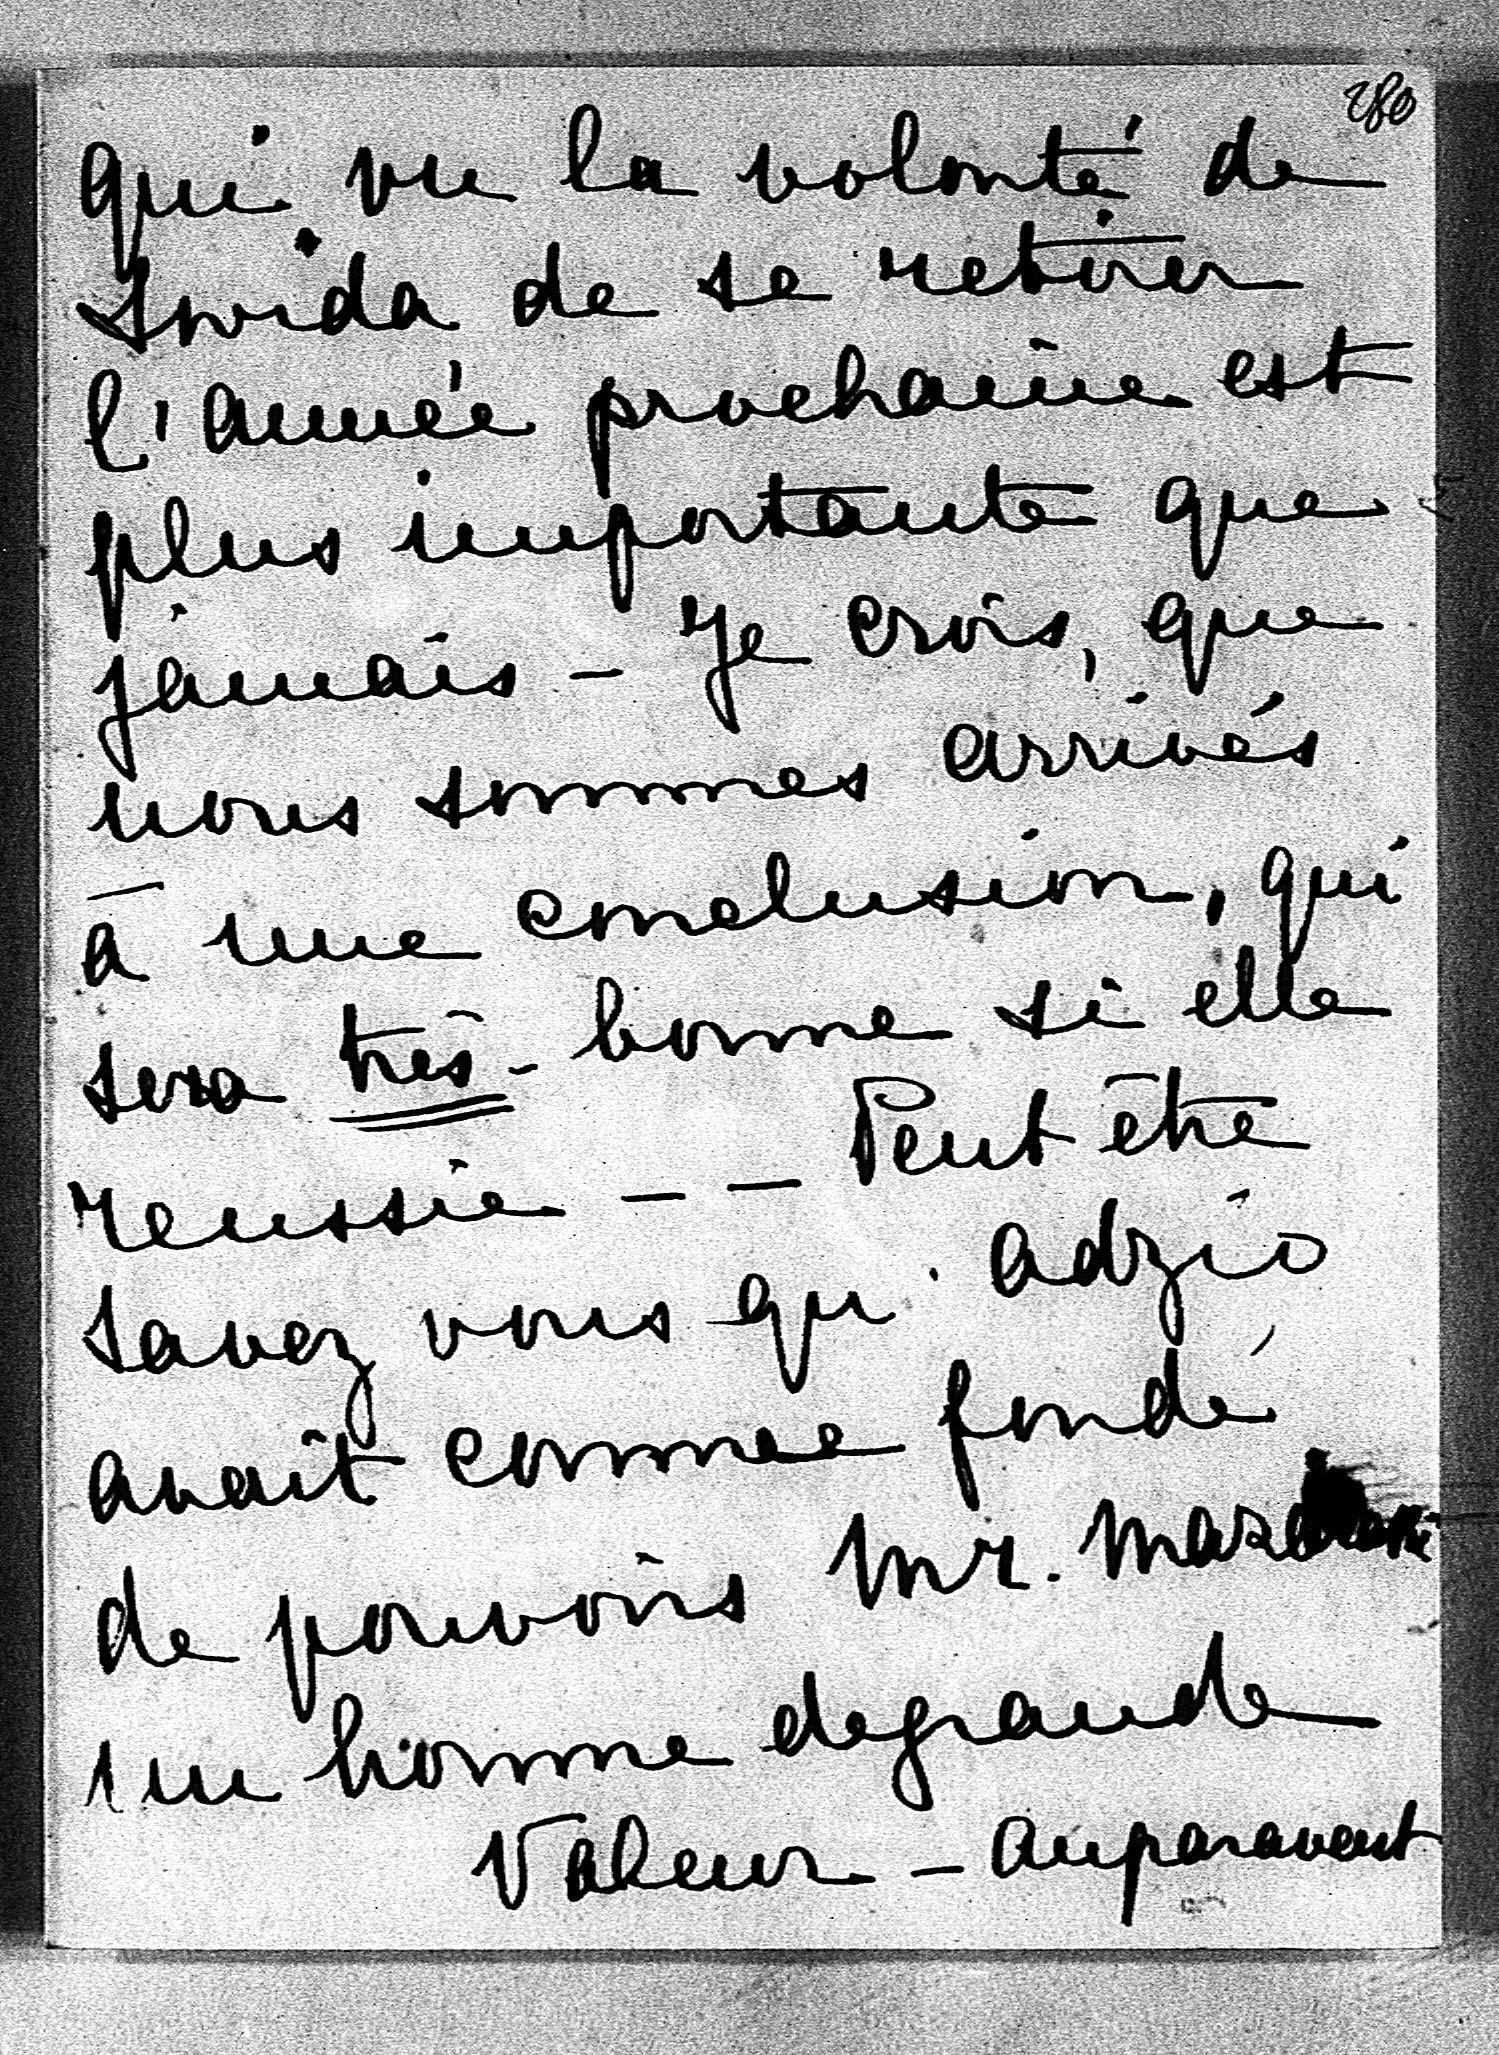 280
qui vu la volonté de
Swida de se retirer
l'année prochaine est
plus importante que
jamais – Je crois, que
nous sommes arrivés
à une conclusion, qui
sera très bonne si elle
reussie – – Peut être
savez vous qu'adzio
avait comme fondé
de pouvoirs Mr.
un homme de grande
Valeur – auparavant